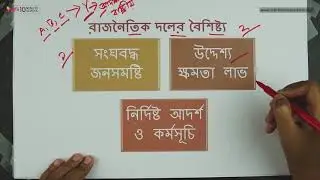 রাজনৈতিক দলের বৈশিষ্ট্য
সংঘবদ্ধ
জনসমষ্টি
উদ্দেশ্য
ক্ষমতা লাভ
নির্দিষ্ট আদর্শ
ও কর্মসূচি